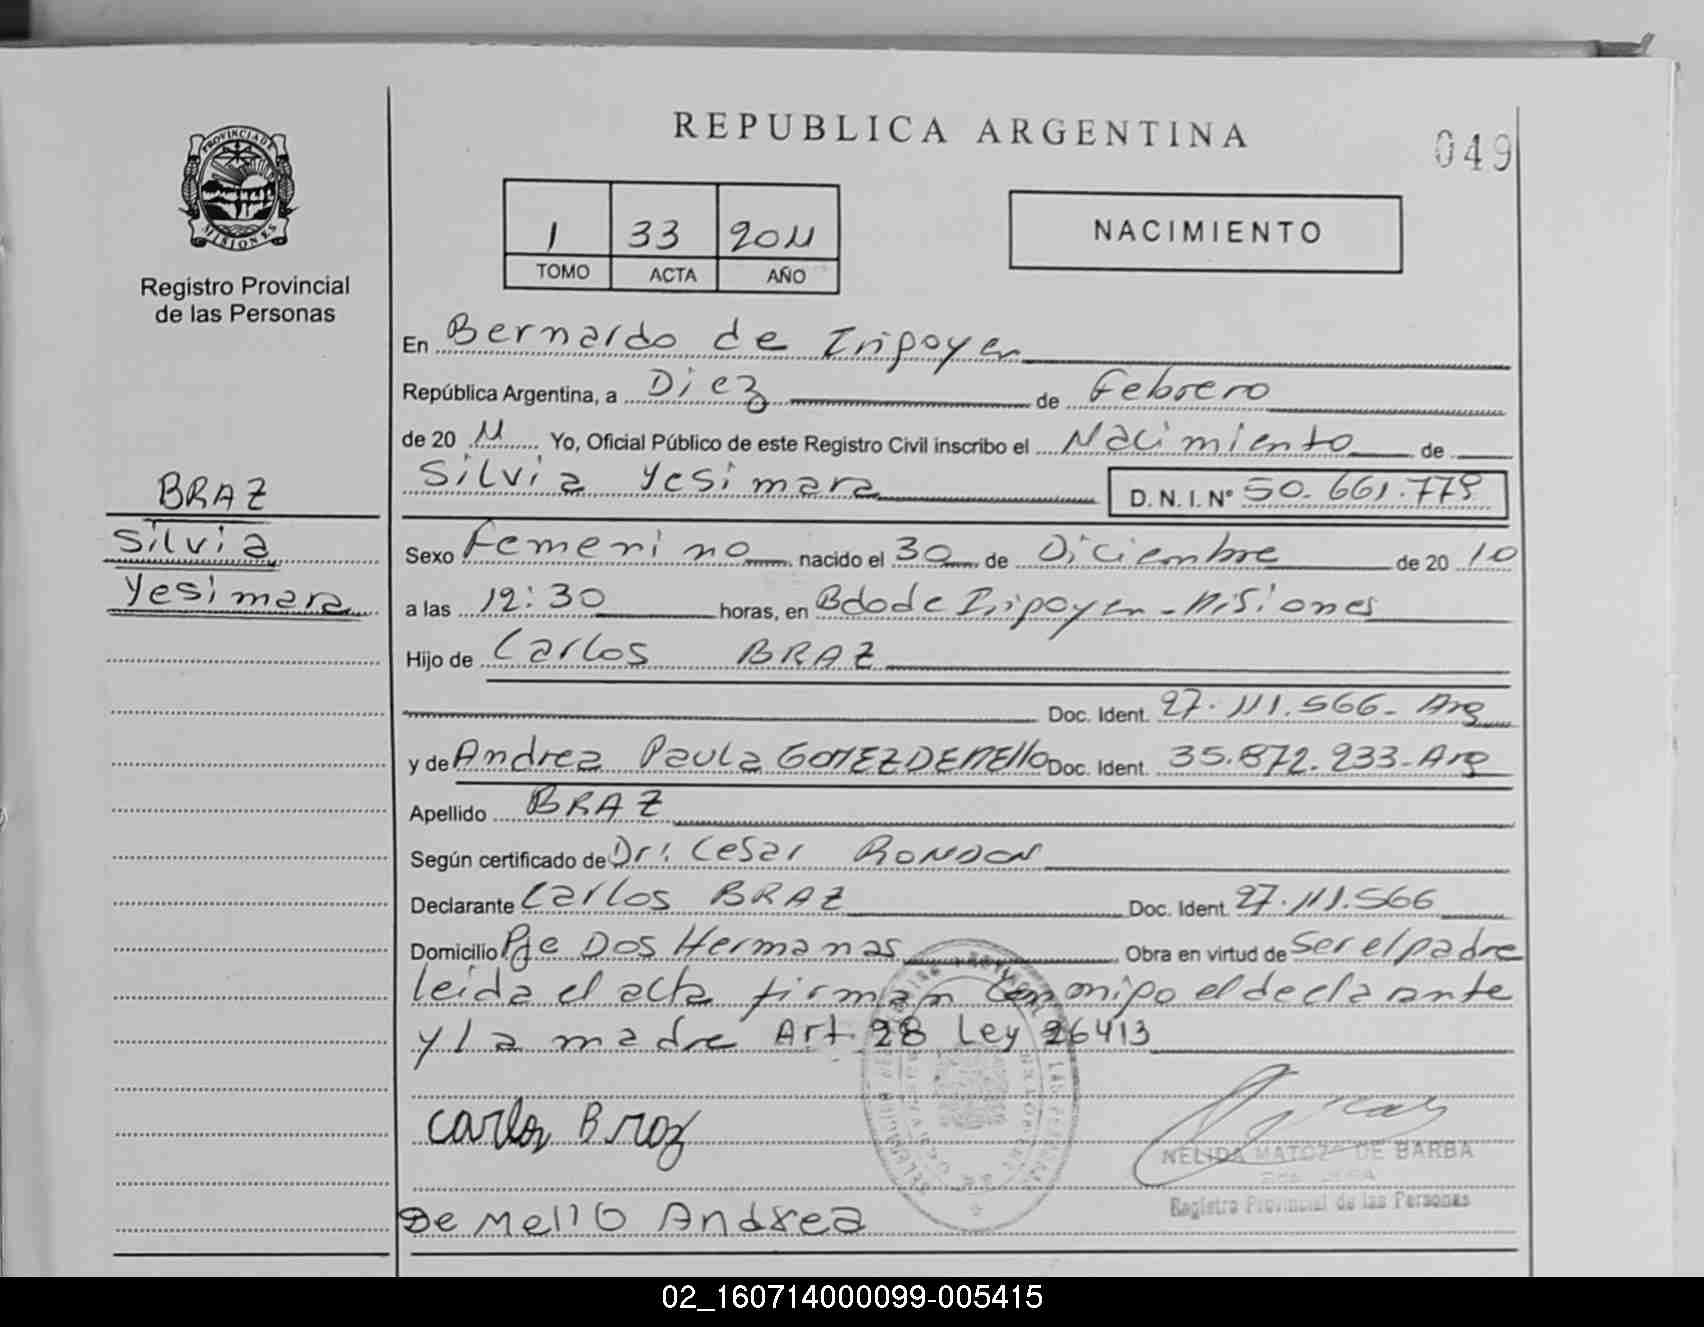 REPUBLICA ARGENTINA
049
PROVINCIA DE MISIONES
Registro Provincial
de las Personas
1 33 2011
TOMO ACTA AÑO
NACIMIENTO
En Bernardo de Iripoyen
República Argentina, a Diez de Febrero
de 20 11 Yo, Oficial Público de este Registro Civil inscribo el Nacimiento de
Silvia Yesimara D.N.I. Nº 50.661.779
BRAZ
Silvia
Yesimara
Sexo Femenino nacido el 30 de Diciembre de 20 10
a las 12:30 horas, en Bdo de Iripoyen - Misiones
Hijo de Carlos BRAZ
Doc. Ident. 27.111.566- Arg
y de Andrea Paula GOMEZ DE MELLO Doc. Ident. 35.872.233-Arg
Apellido BRAZ
Según certificado de Dr: Cesar RONDON
Declarante Carlos BRAZ Doc. Ident. 27.111.566
Domicilio Pje Dos Hermanas Obra en virtud de Ser el padre
leida el acta firman conmipo el declarante
y la madre Art. 28 Ley 26413
Carlos Braz
NELIDA MATOZO DE BARBA
Registro Provincial de las Personas
De Mello Andrea
02_160714000099-005415